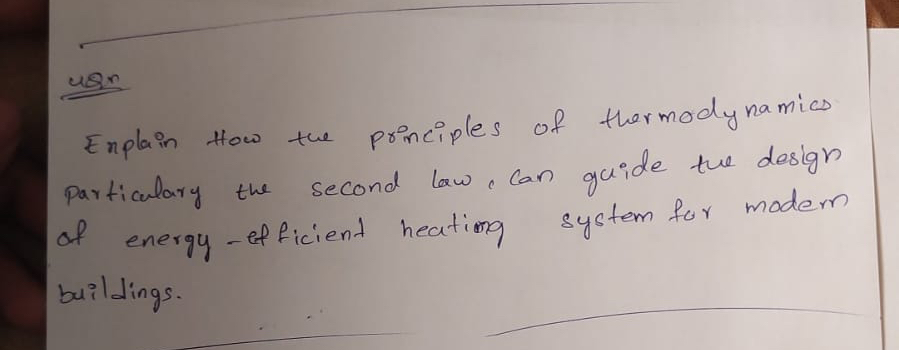 Explain How the principles of thermodynamics
particulary the second law, can guide the design
of energy-efficient heating system for modern
buildings.